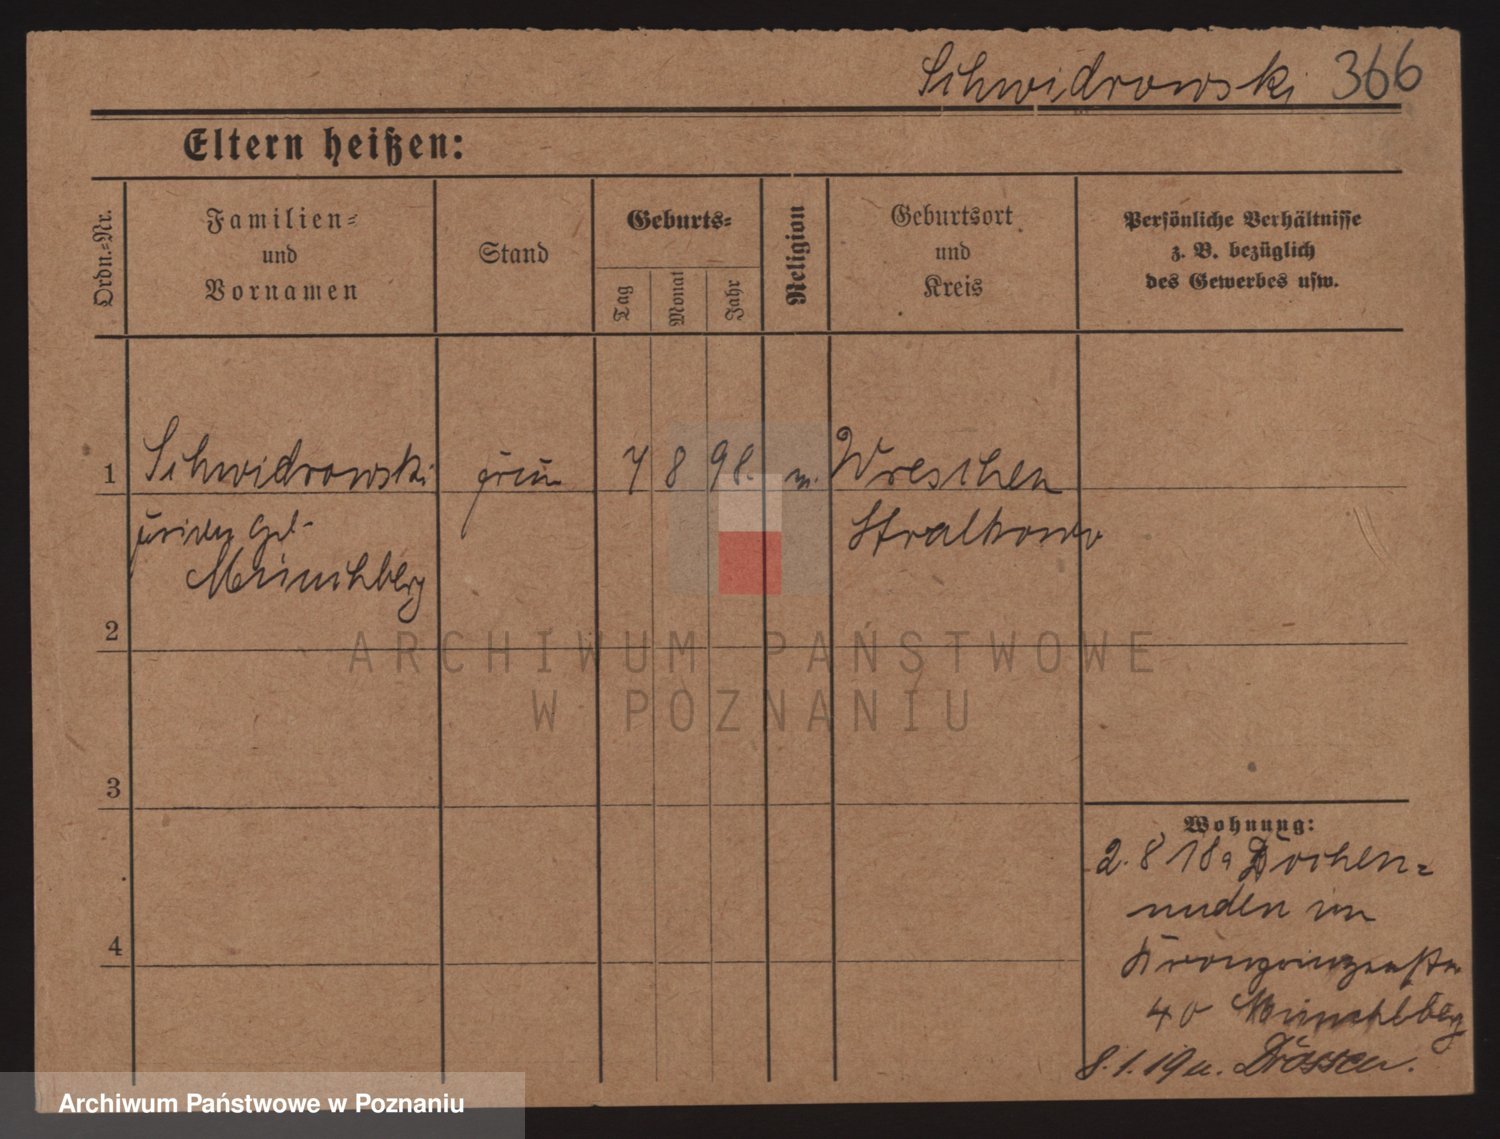 Schwidrowski 366
Eltern heißen:
Ordn.-Nr.
Familien-
und
Vornamen
Stand
Geburts-
Tag
Monat
Jahr
Religion
Geburtsort
und
Kreis
Persönliche Verhältnisse
z. B. bezüglich
des Gewerbes usw.
1
Schwidrowski
7 8 98.
Wreschen
geb.
Stralkowo
Münchberg
2
3
4
Wohnung:
2. 8 18
Kronprinzenstr
40 Münchberg
8. 1. 19 Drossen.
ARCHIWUM PAŃSTWOWE
W POZNANIU
Archiwum Państwowe w Poznaniu